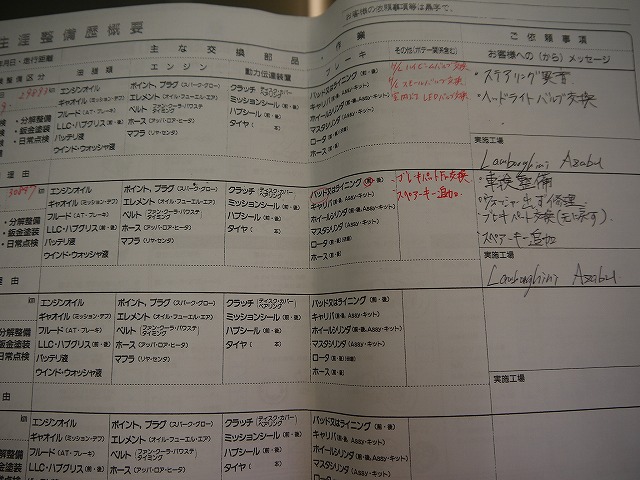 生涯整備歴概要
お客様の依頼事項等は黒字で、
年月日・走行距離
主な交換部品
作業
ご依頼事項
整備区分
油脂類
エンジン
動力伝達装置
ブレーキ
その他(ボデー関係含む)
お客様への(から)メッセージ
29893km
エンジンオイル
ギャオイル(ミッション・デフ)
フルード(AT・ブレーキ)
LLC・ハブグリス(前・後)
バッテリ液
ウインド・ウォッシャ液
ポイント,プラグ(スパーク・グロー)
エレメント(オイル・フューエル・エア)
ベルト(ファン・クーラ・パワステ タイミング)
ホース(アッパ・ロア・ヒータ)
マフラ(リヤ・センタ)
クラッチ(ディスク・カバー ベアリング)
ミッションシール(前・後)
ハブシール(前・後)
タイヤ( 本)
パッド又はライニング(前・後)
キャリパ(前・後, Assy・キット)
ホイールシリンダ(前・後, Assy・キット)
マスタシリンダ(Assy・キット)
ロータ(前・後)(分割)
ホース(前・後)
ハイビームバルブ交換
スモールバルブ交換
LEDバルブ交換
・ステアリング異音
・ヘッドライトバルブ交換
・分解整備
・鈑金塗装
・日常点検
実施工場
Lamborghini Azabu
理由
30847km
エンジンオイル
ギャオイル(ミッション・デフ)
フルード(AT・ブレーキ)
LLC・ハブグリス(前・後)
バッテリ液
ウインド・ウォッシャ液
ポイント,プラグ(スパーク・グロー)
エレメント(オイル・フューエル・エア)
ベルト(ファン・クーラ・パワステ タイミング)
ホース(アッパ・ロア・ヒータ)
マフラ(リヤ・センタ)
クラッチ(ディスク・カバー ベアリング)
ミッションシール(前・後)
ハブシール(前・後)
タイヤ( 本)
パッド又はライニング(前・後)
キャリパ(前・後, Assy・キット)
ホイールシリンダ(前・後, Assy・キット)
マスタシリンダ(Assy・キット)
ロータ(前・後)(分割)
ホース(前・後)
ブレーキパッドFr交換
スペアーキー追加
・車検整備
・ウォッシャー出ず修理
・ブレーキパット交換(元に戻す)
・スペアーキー追加
・分解整備
・鈑金塗装
・日常点検
実施工場
Lamborghini Azabu
理由
km
エンジンオイル
ギャオイル(ミッション・デフ)
フルード(AT・ブレーキ)
LLC・ハブグリス(前・後)
バッテリ液
ウインド・ウォッシャ液
ポイント,プラグ(スパーク・グロー)
エレメント(オイル・フューエル・エア)
ベルト(ファン・クーラ・パワステ タイミング)
ホース(アッパ・ロア・ヒータ)
マフラ(リヤ・センタ)
クラッチ(ディスク・カバー ベアリング)
ミッションシール(前・後)
ハブシール(前・後)
タイヤ( 本)
パッド又はライニング(前・後)
キャリパ(前・後, Assy・キット)
ホイールシリンダ(前・後, Assy・キット)
マスタシリンダ(Assy・キット)
ロータ(前・後)(分割)
ホース(前・後)
分解整備
鈑金塗装
日常点検
実施工場
理由
km
エンジンオイル
ギャオイル(ミッション・デフ)
フルード(AT・ブレーキ)
LLC・ハブグリス(前・後)
ポイント,プラグ(スパーク・グロー)
エレメント(オイル・フューエル・エア)
ベルト(ファン・クーラ・パワステ タイミング)
ホース(アッパ・ロア・ヒータ)
クラッチ(ディスク・カバー ベアリング)
ミッションシール(前・後)
ハブシール(前・後)
タイヤ( 本)
パッド又はライニング(前・後)
キャリパ(前・後, Assy・キット)
ホイールシリンダ(前・後, Assy・キット)
マスタシリンダ(Assy・キット)
ロータ(前・後)(分割)
分解整備
金塗装
常点検